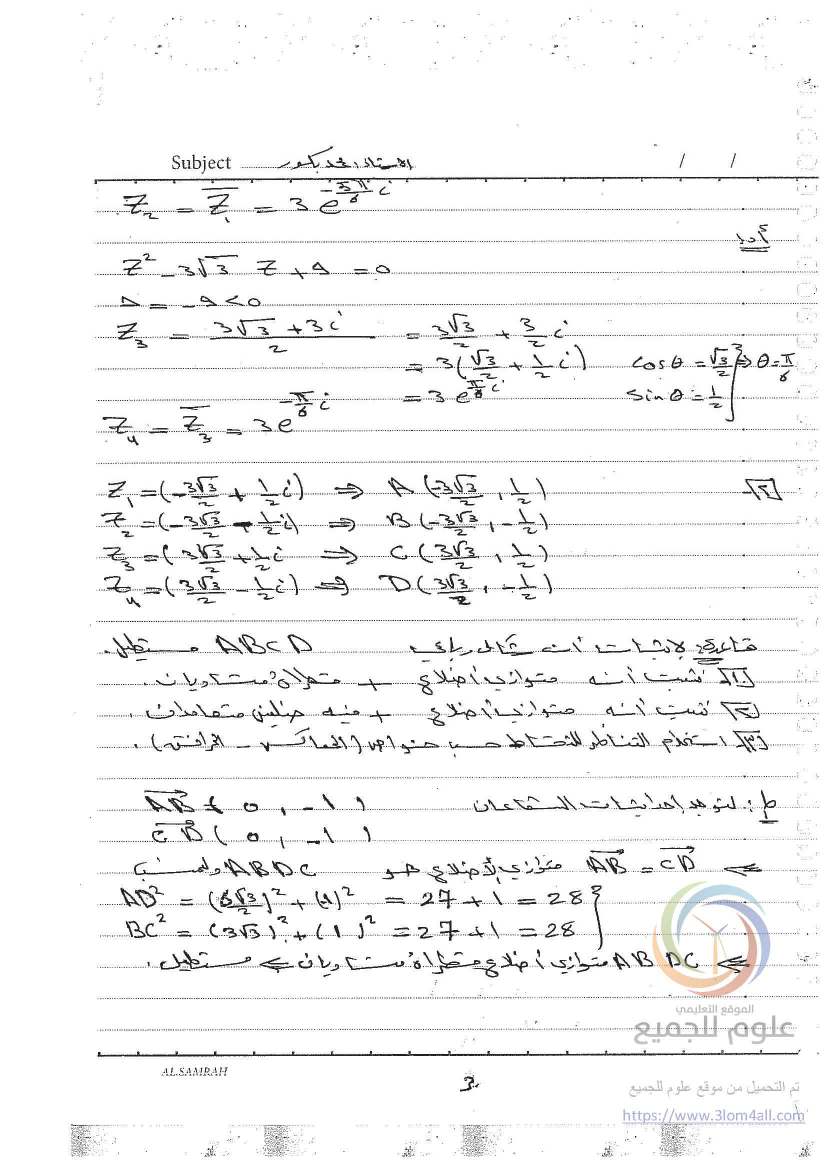 Subject الاستاذ: محمد بكور / /
Z₂ = Z̅₁ = 3 e^(-5π/6 i)
أو
Z² - 3√3 Z + 9 = 0
Δ = -9 < 0
Z₃ = (3√3 + 3i)/2 = 3√3/2 + 3/2 i
= 3(√3/2 + 1/2 i) cosθ = √3/2 } ⇒ θ = π/6
= 3 e^(π/6 i) sinθ = 1/2
Z₄ = Z̅₃ = 3e^(-π/6 i)
[٢] Z₁ = (-3√3/2 + 1/2 i) ⇒ A(-3√3/2 , 1/2)
Z₂ = (-3√3/2 - 1/2 i) ⇒ B(-3√3/2 , -1/2)
Z₃ = (3√3/2 + 1/2 i ⇒ C(3√3/2 , 1/2)
Z₄ = (3√3/2 - 1/2 i) ⇒ D(3√3/2 , -1/2)
قاعدة: لإثبات أن شكل رباعي ABCD مستطيل.
[١] نثبت أنه متوازي أضلاع + قطراه متساويان.
[٢] نثبت أنه متوازي أضلاع + فيه ضلعين متعامدان.
[٣] استخدام التناظر للنقاط حسب خواص (العماكس - المرافقة).
ط١: لنوجد إحداثيات الشعاعان AB ( 0 , -1 )
CD ( 0 , -1 )
⇐ AB = CD متوازي الأضلاع هو ABDC
AD² = (3√3/2)² + (1)² = 27 + 1 = 28 }
BC² = (3√3)² + (1)² = 27 + 1 = 28
⇐ ABDC متوازي أضلاع قطراه متساويان ⇐ مستطيل.
الموقع التعليمي
علوم للجميع
AL.SAMRAH
3
تم التحميل من موقع علوم للجميع
https://www.3lom4all.com